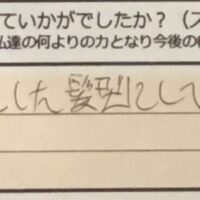 ていかがでしたか？（
達の何よりの力となり今後の
した髪型にして